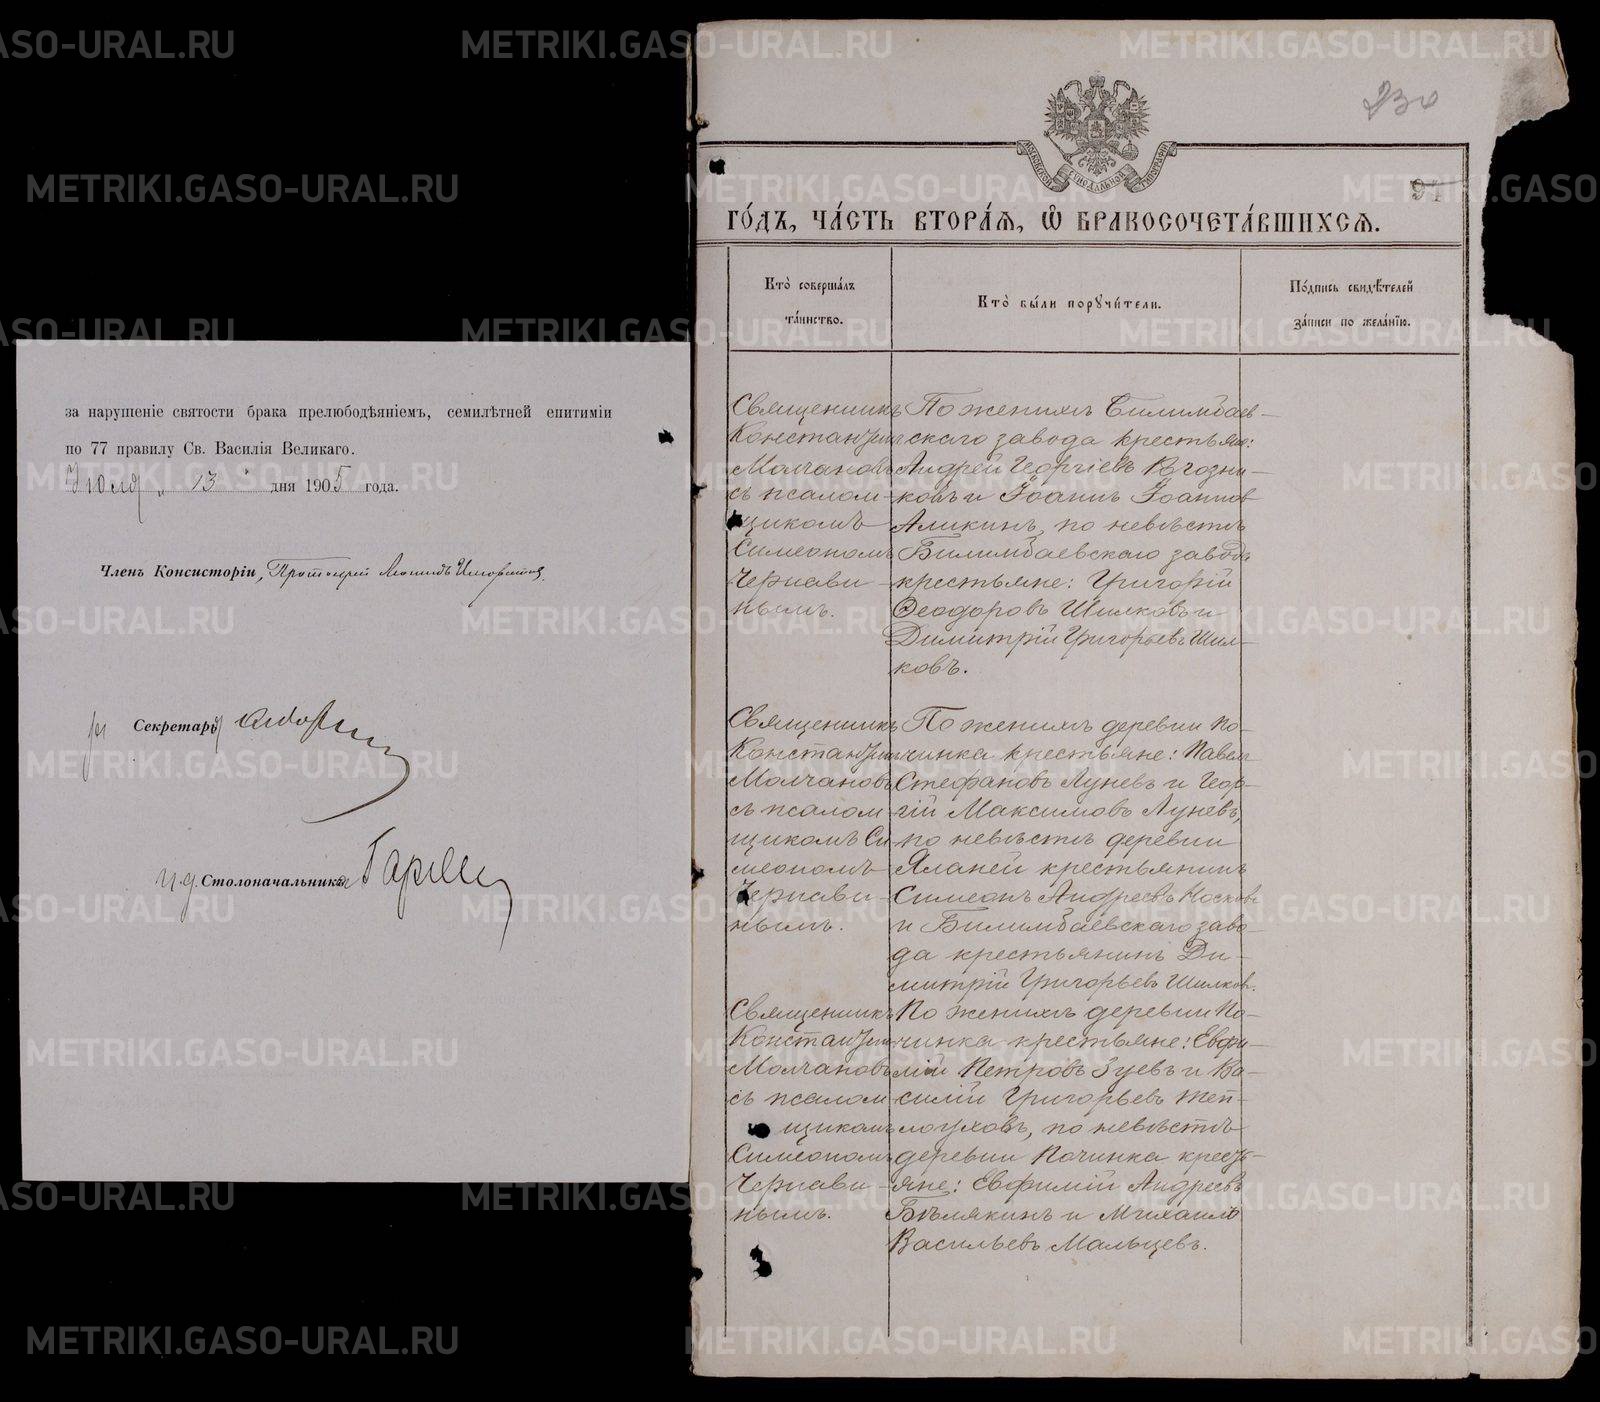 за нарушеніе святости брака прелюбодѣяніемъ, семилѣтней епитиміи
по 77 правилу Св. Василія Великаго.
Іюля „ 13 " дня 1905 года.
Членъ Консисторіи, Протоіерей
Секретарь
и.д. Столоначальника
МОСКОВСКОЙ СѴНОДАЛЬНОЙ ТИПОГРАФІИ
94
ГО́ДЪ, ЧА́СТЬ ВТОРА́Я, Ѡ БРАКОСОЧЕТА́ВШИХСЯ.
Кто̀ соверша́лъ
та́инство.
Кто̀ бы́ли порꙋчи́тели.
По́дпись свидѣ́телей
за́писи по жела́нїю.
Священникъ
Константин
Молчановъ
съ псалом-
щикомъ
Симеономъ
Чернави-
нымъ.
По женихѣ Билимбаев-
скаго завода крестьяне:
Андрей Георгіевъ Вогзни-
ковъ и Іоаннъ Іоаннов
Аликинъ, по невѣстѣ
Билимбаевскаго завода
крестьяне: Григорій
Ѳеодоровъ Шилковъ и
Димитрій Григорьевъ Шил-
ковъ.
Священникъ
Константин
Молчановъ
съ псалом
щикомъ Си
меономъ
Чернави-
нымъ.
По женихѣ деревни По-
чинка крестьяне: Павелъ
Стефановъ Луневъ и Геор-
гій Максимовъ Луневъ,
по невѣстѣ деревни
Яланей крестьянинъ
Симеонъ Андреевъ Носковъ
и Билимбаевскаго заво-
да крестьянинъ Ди-
митрій Григорьевъ Шилков.
Священникъ
Константин
Молчановъ
съ псалом
щикомъ
Симеономъ
Чернави-
нымъ.
По женихѣ деревни По-
чинка крестьяне: Евфи-
мій Петровъ Зуевъ и Ва-
силій Григорьевъ Теп-
лоуховъ, по невѣстѣ
деревни Починка кресть-
яне: Евфимій Андреевъ
Бѣлякинъ и Михаилъ
Васильевъ Мальцевъ.
METRIKI.GASO-URAL.RU